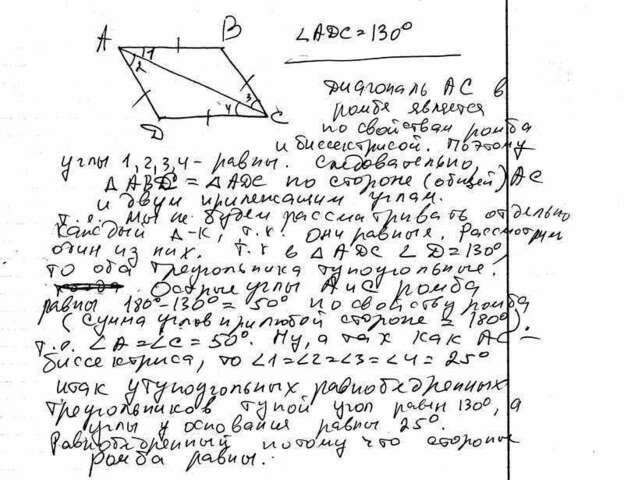 A
B
∠ADC = 130°
1
2
3
4
D
C
Диагональ AC в
ромбе является
по свойствам ромба
и биссектрисой. Поэтому
углы 1, 2, 3, 4 - равны. Следовательно,
△ABC = △ADC по стороне (общей) AC
и двум прилежащим углам.
т.о. мы не будем рассматривать отдельно
каждый △-к, т.к. они равные. Рассмотрим
один из них. т.к в △ADC ∠D = 130°,
то оба треугольника тупоугольные.
Острые углы A и C ромба
равны 180° - 130° = 50° по свойству ромба
(сумма углов при любой стороне = 180°).
т.о. ∠A = ∠C = 50°. Ну, а так как AC –
биссектриса, то ∠1 = ∠2 = ∠3 = ∠4 = 25°
итак у тупоугольных равнобедренных
треугольников тупой угол равен 130°, а
углы у основания равны 25°.
Равнобедренный потому что стороны
ромба равны.